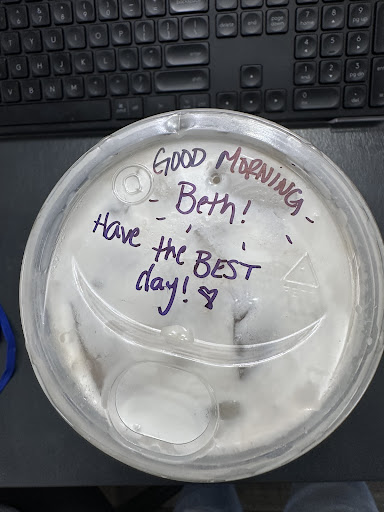 GOOD MORNING
- Beth! -
Have the BEST
day! ♡